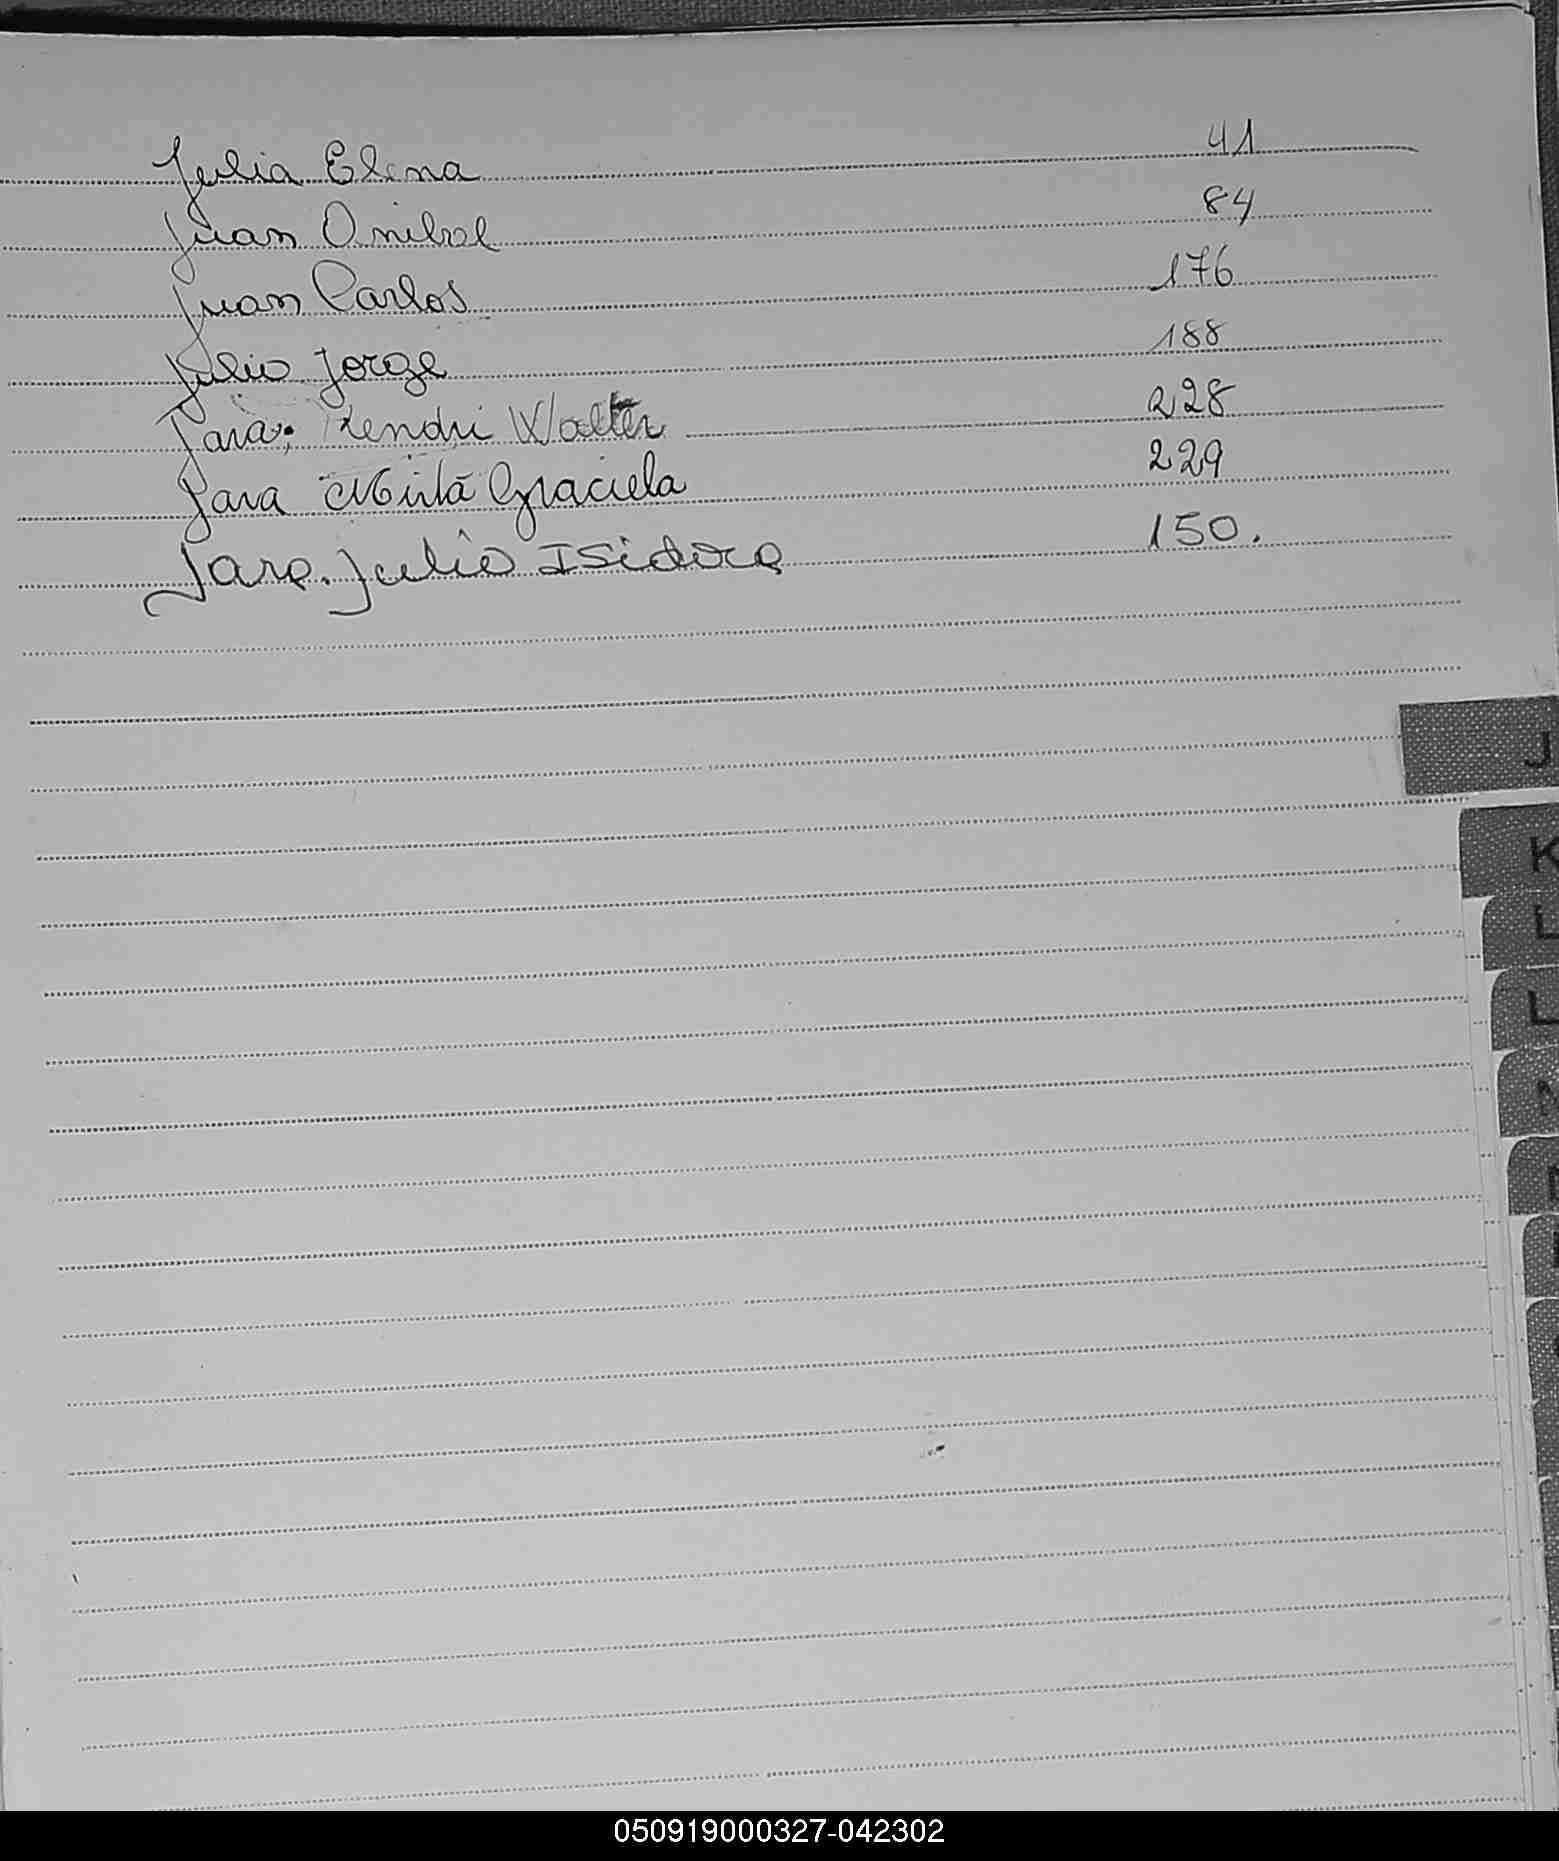 Julia Elena 41
Juan Anibal 84
Juan Carlos 176
Julio Jorge 188
Jara, Kendri Walter 228
Jara Mirta Graciela 229
Jara. Julio Isidora 150.
J
K
L
L
050919000327-042302